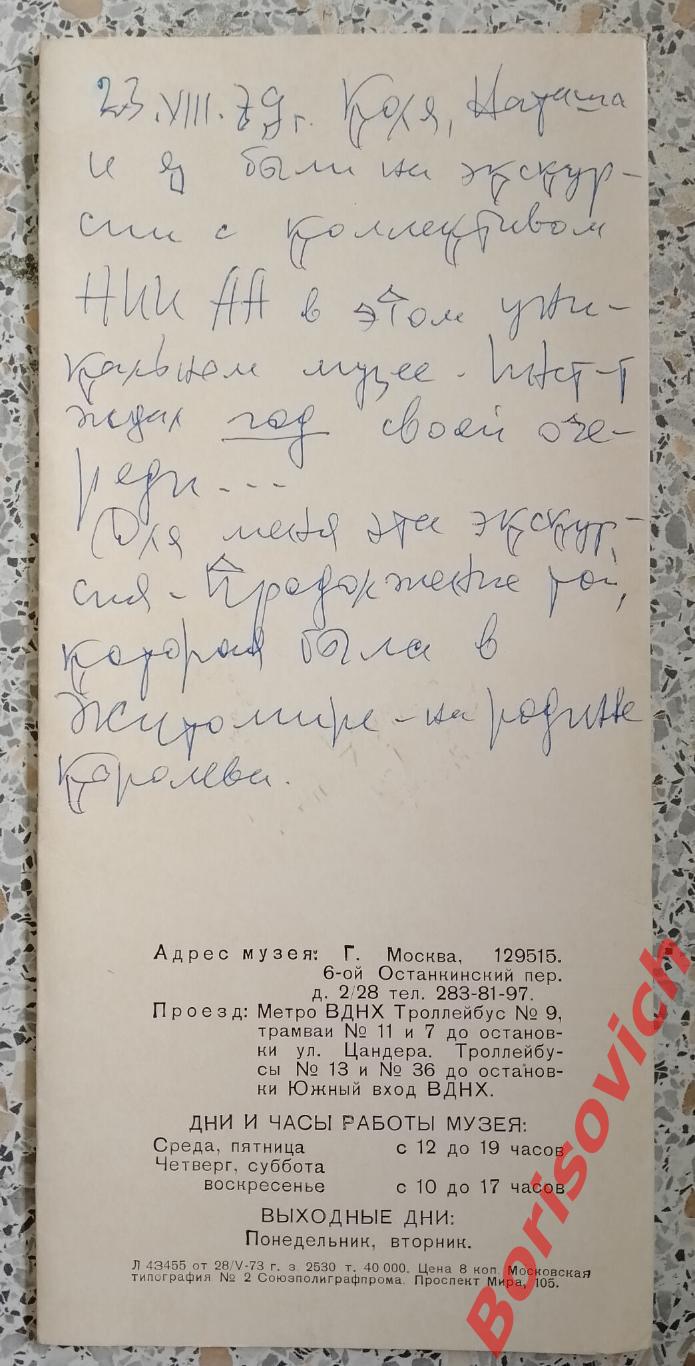 23.VIII.79 г. Коля, Наташа
и я были на экскур-
сии с коллективом
НИИ АА в этом уни-
кальном музее. Инст-т
ждал год своей оче-
реди...
Для меня эта экскур-
сия - продолжение той,
которая была в
Житомире - на родине
Королёва.
Адрес музея: Г. Москва, 129515.
6-ой Останкинский пер.
д. 2/28 тел. 283-81-97.
Проезд: Метро ВДНХ Троллейбус № 9,
трамваи № 11 и 7 до останов-
ки ул. Цандера. Троллейбу-
сы № 13 и № 36 до останов-
ки Южный вход ВДНХ.
ДНИ И ЧАСЫ РАБОТЫ МУЗЕЯ:
Среда, пятница с 12 до 19 часов
Четверг, суббота
воскресенье с 10 до 17 часов
ВЫХОДНЫЕ ДНИ:
Понедельник, вторник.
Л 43455 от 28/V-73 г. з. 2530 т. 40 000. Цена 8 коп. Московская
типография № 2 Союзполиграфпрома. Проспект Мира, 105.
Borisovich